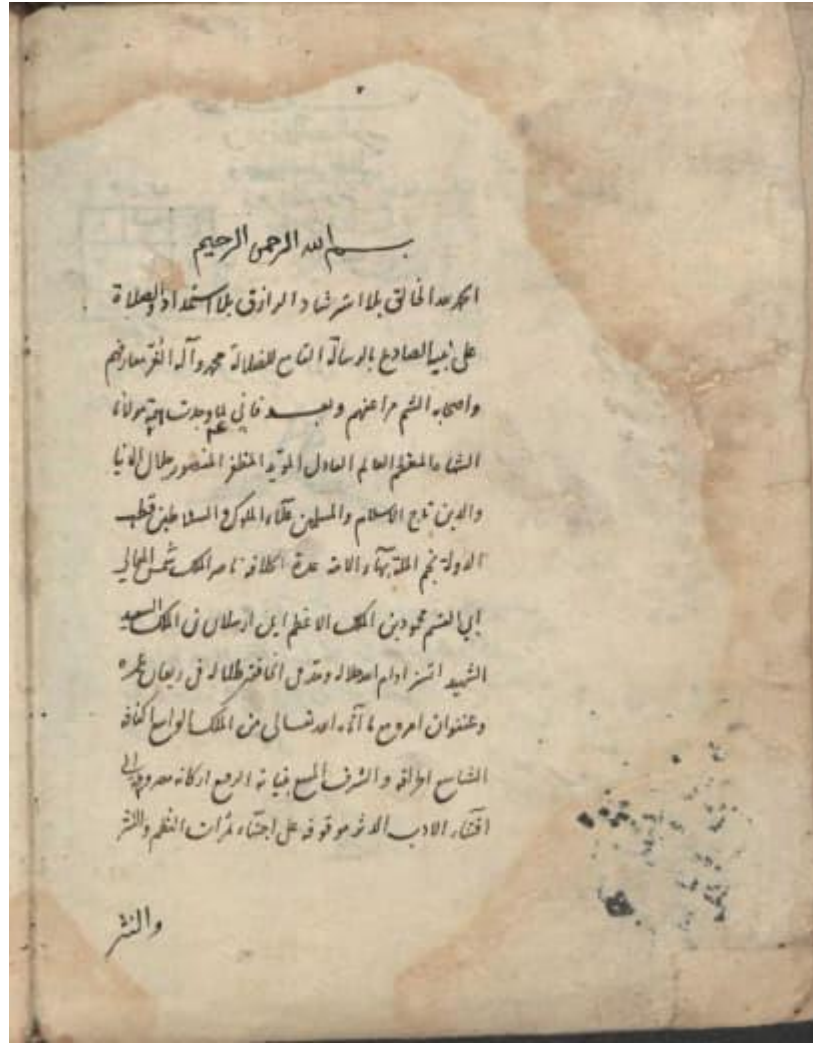 بسم الله الرحمن الرحيم
الحمد لله الخالق بلا استرشاد الرازق بلا استمداد والصلاة
على نبيه الصادع بالرسالة للضلالة محمد وآله الغر معارفهم
واصحابه الشم مراعفهم وبعد فاني لما وجدت همة مولانا
الشاه المعظم العالم العادل المؤيد المظفر المنصور جلال الدنيا
والدين تاج الاسلام والمسلمين علاء الملوك والسلاطين قطب
الدولة نجم الملة بهاء الامة عدة الخلافة ناصر الملك شمس المعالي
ابي القسم محمود بن الملك الاعظم ايل ارسلان بن الملك السعيد
الشهيد اتسز ادام الله جلاله ومد في الخافقين ظلاله في ريعان عمره
وعنفوان امره مع ما آتاه الله تعالى من الملك الواسع اكنافه
الشاسع اطرافه والشرف بنيانه الرفيع اركانه مصروفة الى
اقتناء الادب موقوفة على اجتناء ثمرات النظم والنثر
والنثر